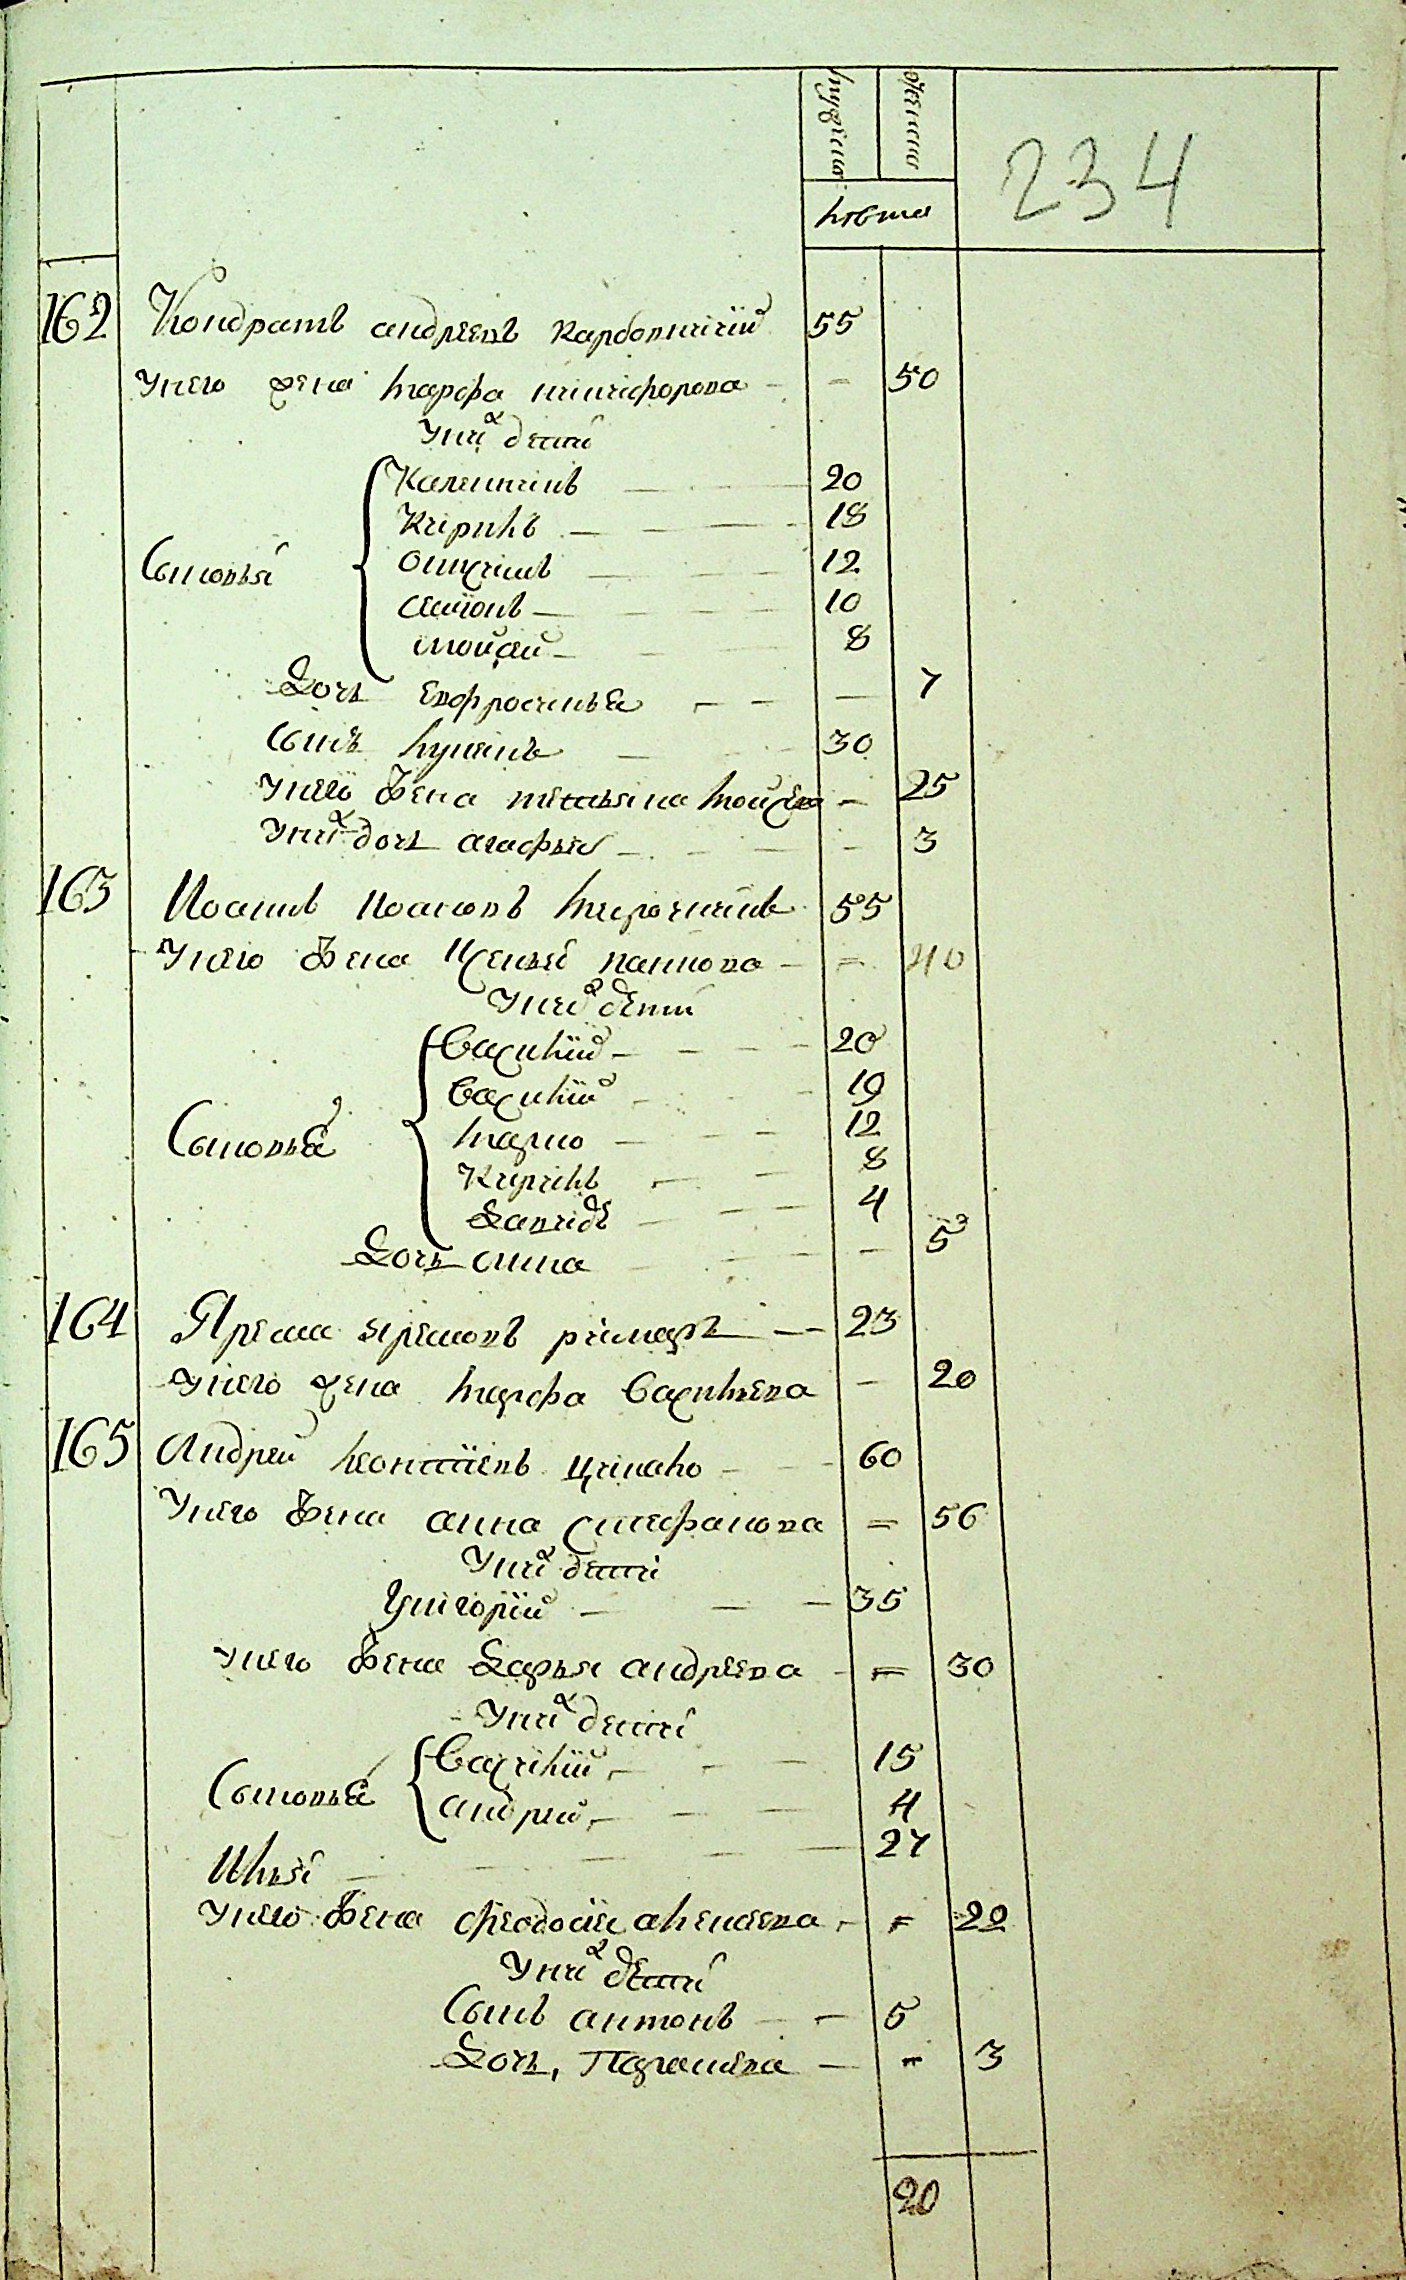 мужска женска
лѣта
234
162 Кондратъ андреевъ карбовничiй 55
унего жена марфа никифорова - - 50
Униⷯ дети
Сыновья
Калениикъ 20
Кирилъ 18
Онисимъ 12
семіонъ 10
моисей 8
Дочь евфросинья - 7
Сынъ лукянъ 30
Унего жена татьяна моисеева - 25
Униⷯ дочь агафья - 3
163 Иоаннъ иоановъ мирочникъ 55
Унего жена Ксенья панкова - = 40
Униⷯ дети
Сыновья
василій 20
василій 19
марко 12
Кирилъ 8
Давидъ 4
Дочь анна - 5
164 Ярема яремовъ римаръ 23
Унего жена марфа василиева - 20
165 Андрей леонтіевъ цимало 60
Унего жена анна стефанова = 56
Униⷯ дети
Григорій 35
унего жена Дарья андреева = 30
Униⷯ дети
Сыновья
василій 15
андрей 4
Илья 27
Унего жена феодосія алексеева = 20
Униⷯ дети
Сынъ антонъ 5
Дочь, Парасковья = 3
20